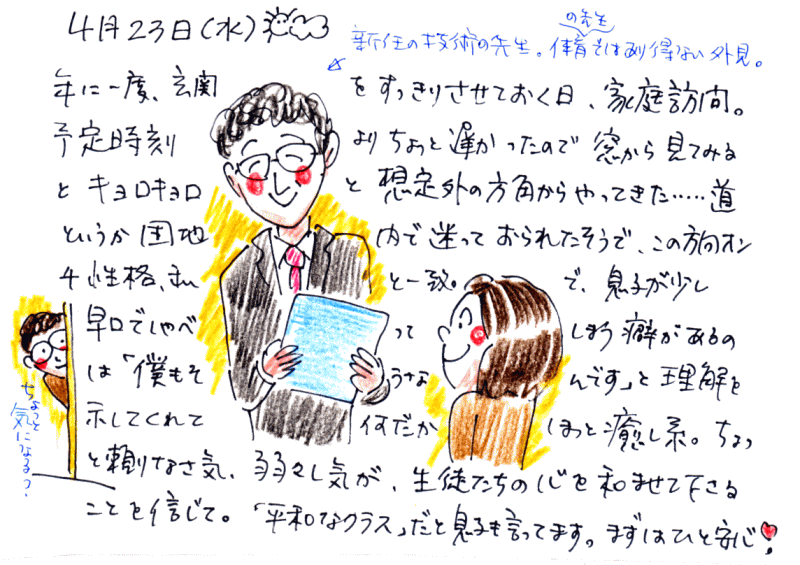 4月23日(水)
新任の技術の先生。体育の先生ではあり得ない外見。
年に一度、玄関をすっきりさせておく日、家庭訪問。
予定時刻よりちょっと遅かったので窓から見てみる
とキョロキョロと想定外の方角からやってきた……道
というか団地内で迷っておられたそうで、この方向オン
チ性格、私と一致。で、息子が少し
早口でしゃべってしまう癖があるの
は「僕もそうなんです」と理解を
示してくれて何だかほっと癒し系。ちょっ
と頼りなさ気、弱々し気が、生徒たちの心を和ませて下さる
ことを信じて。「平和なクラス」だと息子も言ってます。まずはひと安心!
ちょっと
気になるっ?